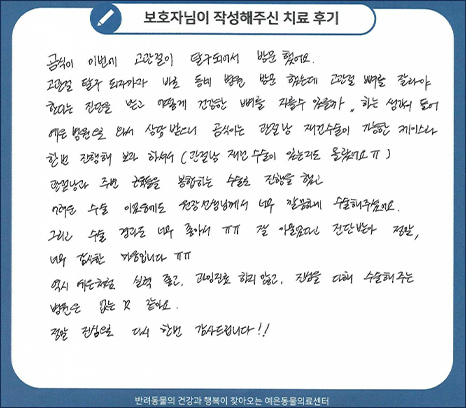 보호자님이 작성해주신 치료 후기
금식이 이번에 고관절이 탈구되어서 방문 했어요.
고관절 탈구 되자마자 바로 동네 병원 방문 했는데 고관절 뼈를 잘라야
한다는 진단을 받고 어떻게 건강한 뼈를 자를수 있을까, 하는 생각이 들어
예은 병원으로 와서 상담 받으니 금식이는 관절낭 재건수술이 가능한 케이스라
한번 진행해 보자 하셔서 (관절낭 재건 수술이 있는지도 몰랐어요ㅠ)
관절낭과 주변 근육들을 봉합하는 수술로 진행을 했고
어려운 수술 이었음에도 원장선생님께서 너무 깔끔하게 수술해주셨어요.
그리고 수술 경과도 너무 좋아서 ㅠㅠ 잘 아물었다고 진단받아 정말,
너무 감사한 마음입니다 ㅠㅠ
역시 예은처럼 실력 좋고, 과잉진료 하지 않고, 진심을 다해 수술해 주는
병원은 없는 것 같아요.
정말 진심으로 다시 한번 감사드립니다!!
반려동물의 건강과 행복이 찾아오는 예은동물의료센터